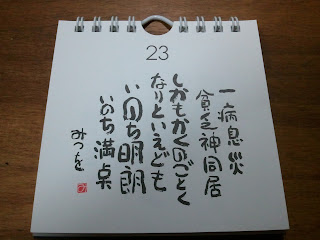 23
一病息災
貧乏神同居
しかもかくのごとく
なりといえども
いのち明朗
いのち満点
みつを